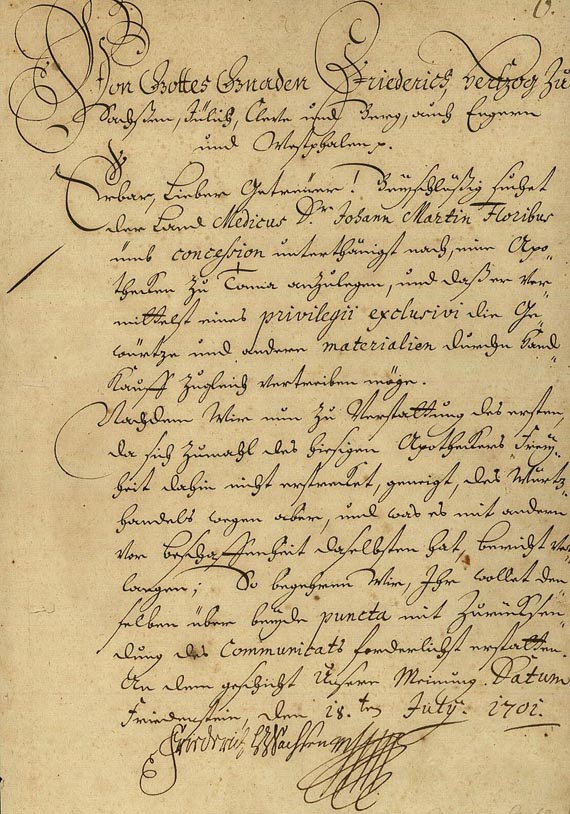 Von Gottes Gnaden Friederich, Hertzog zu
Sachßen, Jülich, Cleve und Berg, auch Engern
und Westphalen p.
Erbar, Lieber Getreüer! Beyschlüßig suchet
der Land Medicus Dr. Johann Martin Floribus
umb concession unterthänigst nach, eine Apo„
theken zu Tonna anzulegen, und daß er ver„
mittelst eines privilegii exclusivi die Ge„
würtze und andere materialien durchn Hand„
Kauff zugleich vertreiben möge.
Nachdem Wir nun zu Verstattung des ersten,
da sich zumahl des hiesigen Apotheckers Frey„
heit dahin nicht erstrecket, geneigt, des Würtz„
handels wegen aber, und was es mit andern
vor beschaffenheit daselbsten hat, bericht ver„
langen; So begehren Wir, Ihr wollet den
selben über beyde puncta mit Zurücksen„
dung des Communicats forderlichst erstatten.
An dem geschicht Unsere Meinung. Datum
Friedenstein, den 18.ten July. 1701.
Friederich HzSachsen